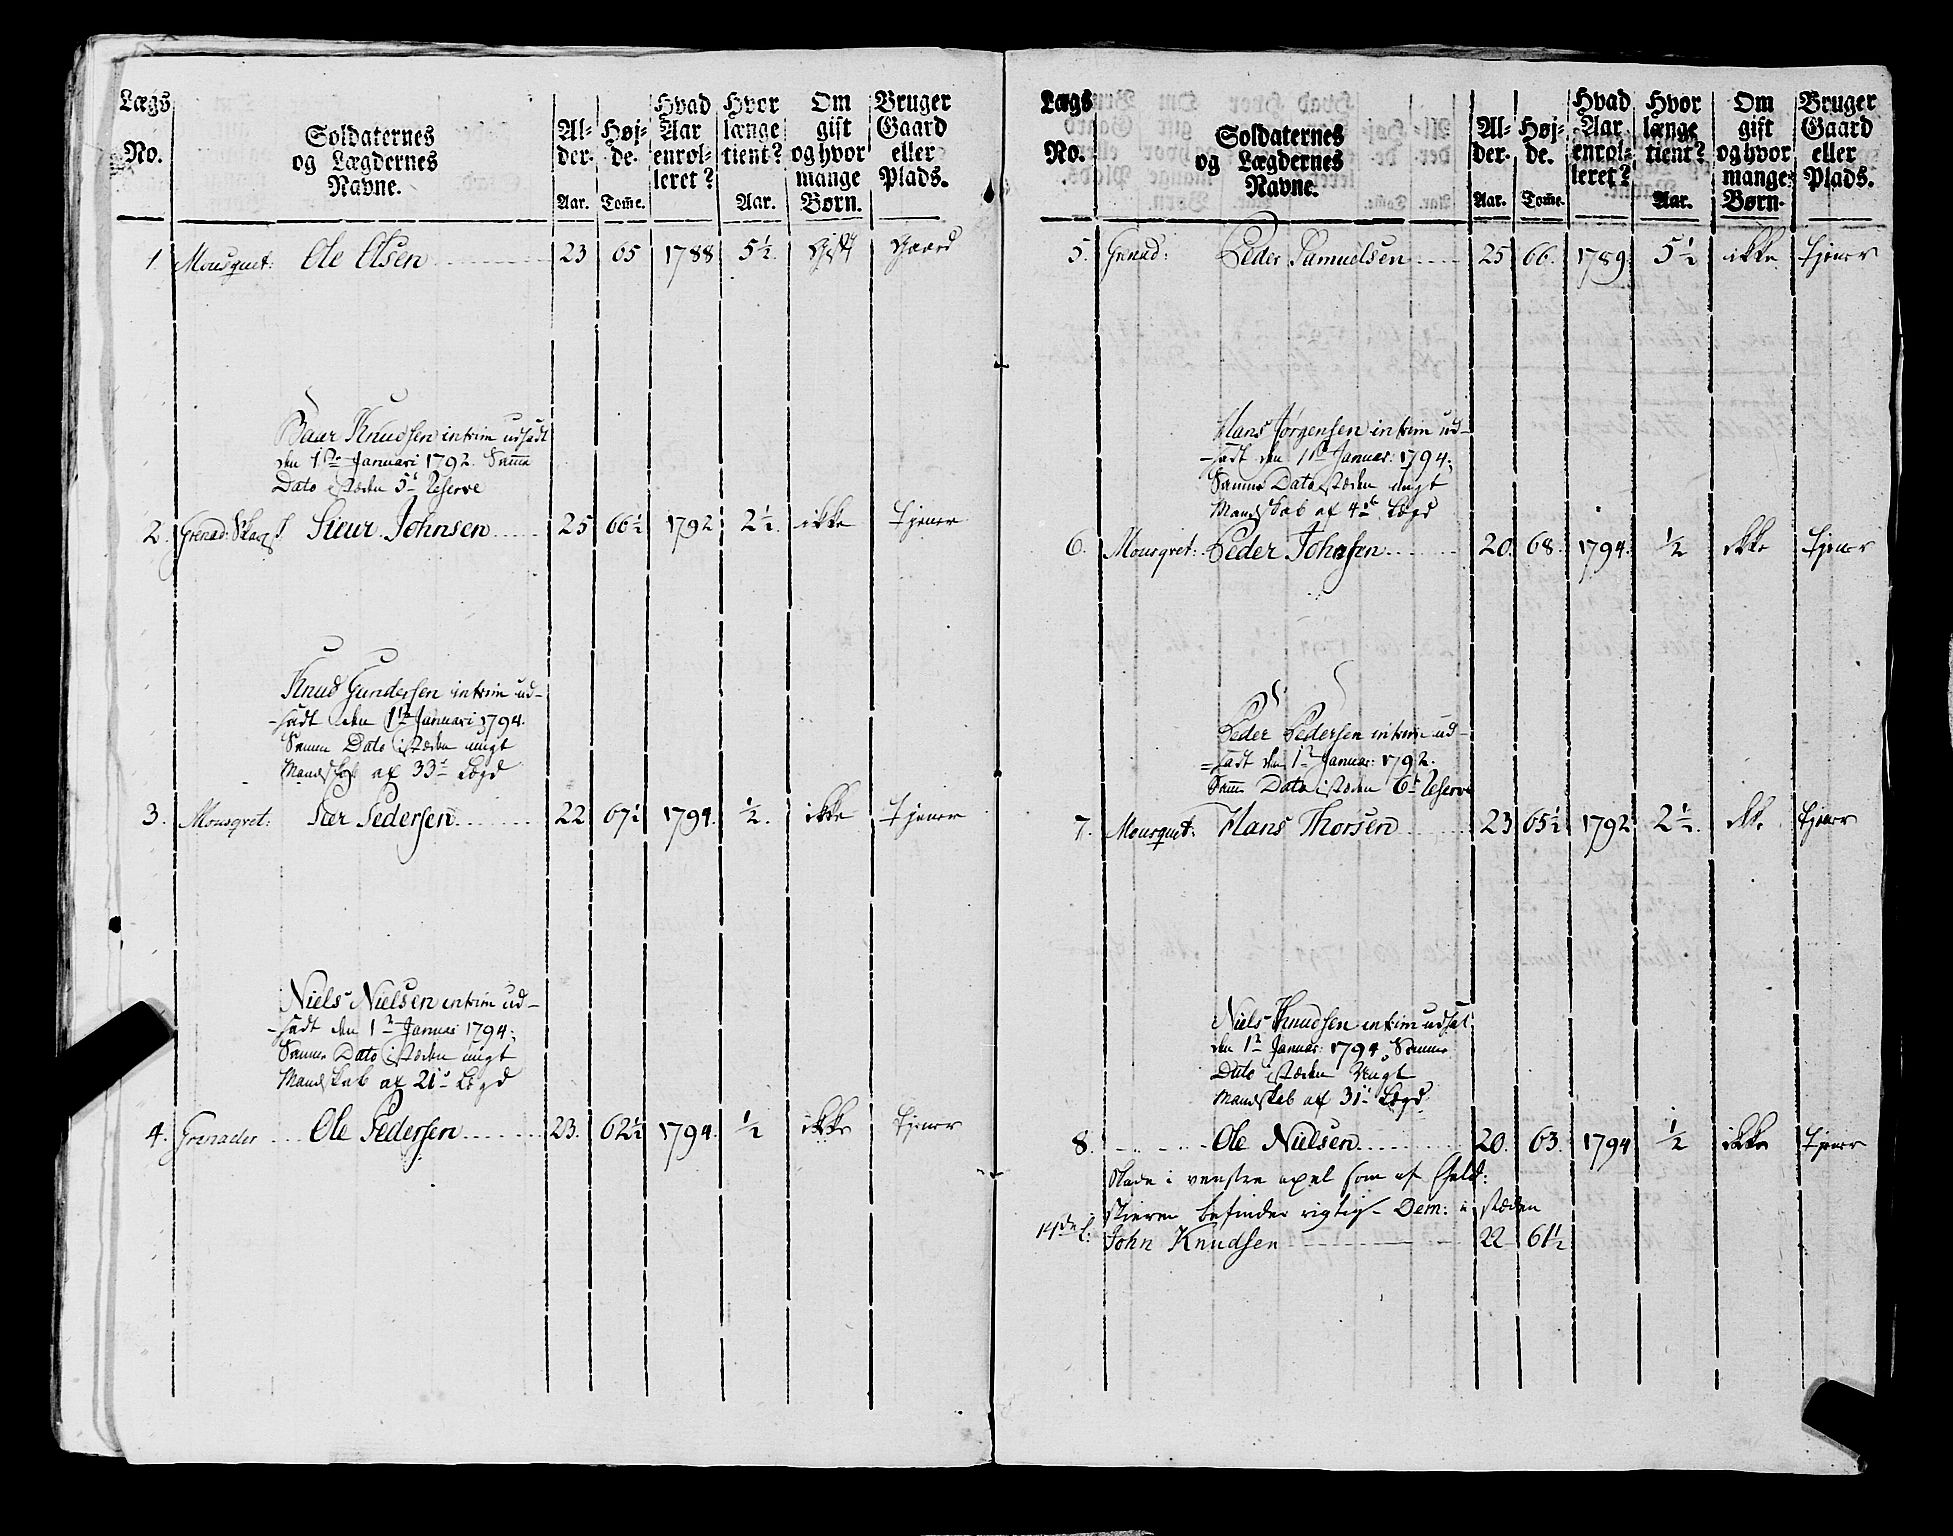 Lægs No. Soldaternes og Lægdernes Navne. Al- der. Aar. Høj- de. Tom̄e. Hvad Aar enrol- leret? Hvor længe tient? Aar. Om gift og hvor mange Børn. Bruger Gaard eller Plads.
1. Mousquet: Ole Olsen 23 65 1788 5½ Gift Gaard
Baar Knudsen intrim udsadt
den 1ste Januari 1792. Samme
Dato i stæden 5te Reserve
2. Grenad: Sivur Johnsen 25 66½ 1792 2½ ikke tjener
Knud Gundersen intrim ud-
-sadt den 1te Januari 1794.
Samme Dato i stæden ungt
Mandskab af 33te Lægd
3. Mousqvet: Peer Pedersen 22 67½ 1794. ½. ikke tjener
Niels Nielsen intrim ud-
-sadt den 1te Januari 1794.
Samme Dato i stæden ungt
Mandskab af 21de Lægd
4. Grenader Ole Pedersen 23. 62½ 1794. ½ ikke tjener
Lægs No. Soldaternes og Lægdernes Navne. Al- der. Aar. Høj- de. Tom̄e. Hvad Aar enrol- leret? Hvor længe tient? Aar. Om gift og hvor mange Børn. Bruger Gaard eller Plads.
5. Grenad: Peder Samuelsen 25 66. 1789. 5½ ikke tjener
Hans Jørgensen intrim ud-
-sadt den 1te Januar: 1794.
Samme Dato i stæden ungt
Mandskab af 4de Lægd
6. Mousqvet: Peder Johnsen 20. 68. 1794. ½ ikke tjener
Peder Pedersen intrim ud-
-sadt den 1te Januar: 1792.
Samme Dato i stæden 6te Reserve
7. Mousquet: Hans Thorsen 23 65½ 1792 2½. ikke tjener
Niels Knudsen intrim udsat
den 1te Januar: 1794. Samme
Dato i stæden Ungt
Mandskab af 31te Lægd
8. Ole Nielsen 20. 63. 1794 ½ ikke tjener
Skade i venstre axel som af Feldt:
skieren befindes rigtig - Dem: i stæden
14de L: John Knudsen 22 61½